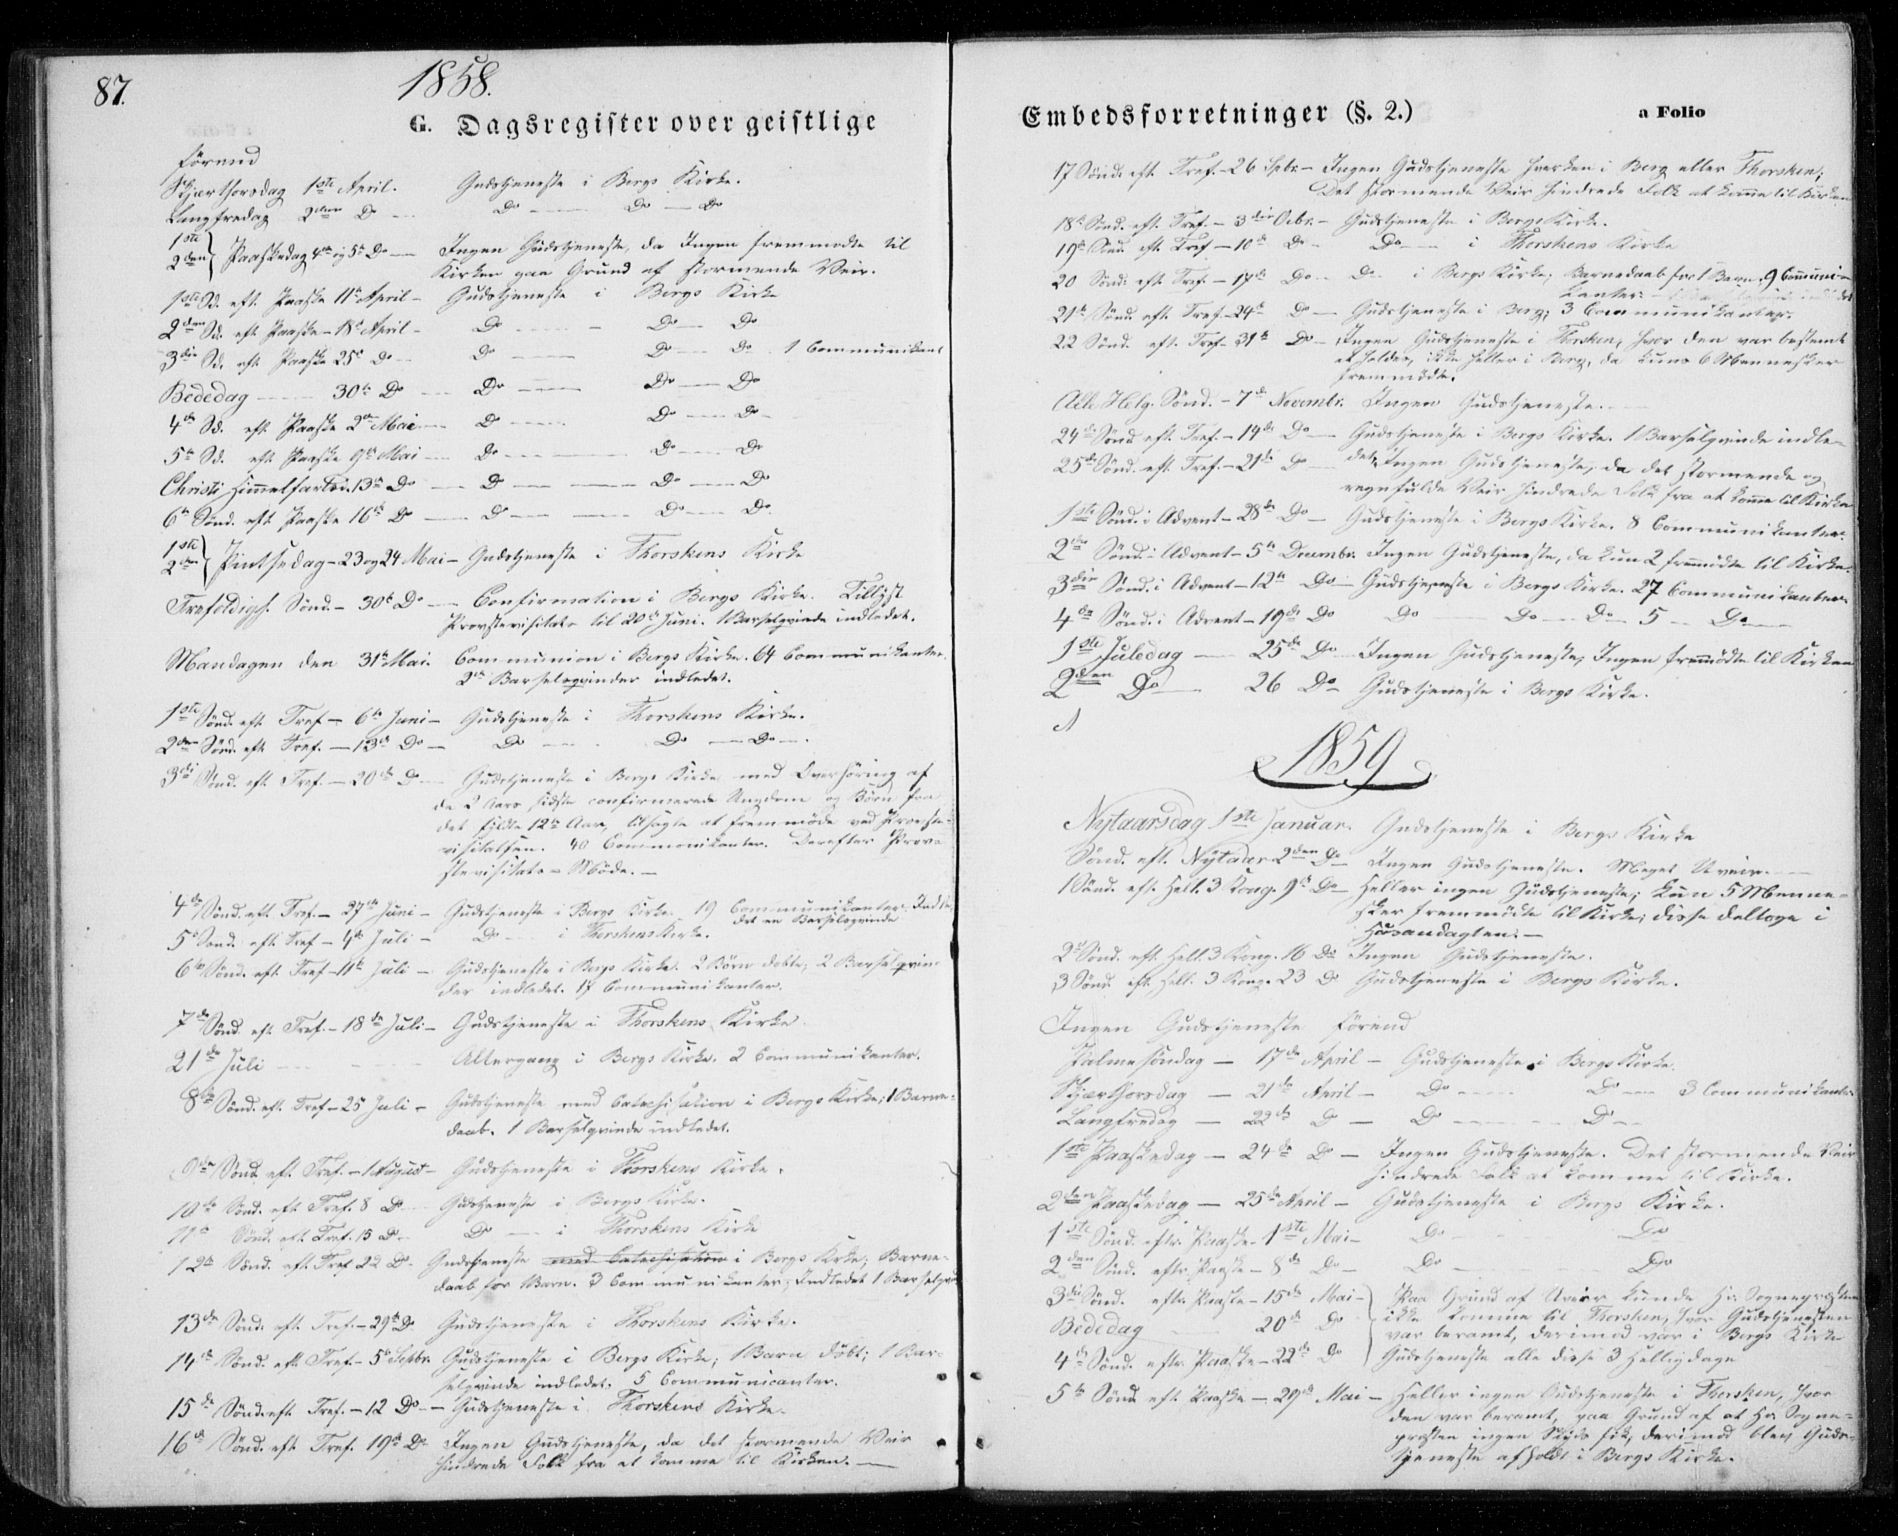 87.
1858.
G. Dagsregister over geistlige
förend
Skjærthorsdag 1ste April. Gudstjeneste i Bergs Kirke.
Langfredag 2den Do — Do — Do — Do
1ste
2den } Paaskedag 4de og 5te Do — Ingen Gudstjeneste, da Ingen fremmødte til
Kirken paa Grund af stormende Veir.
1ste Sd. eft. Paaske 11te April — Gudstjeneste i Bergs Kirke
2den Sd. eft. Paaske — 18de April — Do — Do — Do
3die Sd. eft. Paaske 25de Do — Do — Do — Do. 1 Communikant
Bededag — 30te Do — Do — Do — Do
4de Sd. eft. Paaske 2den Mai — Do — Do — Do
5te Sd. eft. Paaske 9de Mai — Do — Do — Do
Christi Himmelfartsd. 13de Do — Do — Do — Do
6te Sønd. eft. Paaske 16de Do — Do — Do — Do
1ste
2den } Pintsedag — 23 og 24 Mai — Gudstjeneste i Thorskens Kirke
Trefoldigh. Sønd. — 30te Do — Confirmation i Bergs Kirke. Tillyst
Provstevisitats til 20de Juni. 1 Barselqvinde indledet.
Mandagen den 31te Mai. Communion i Bergs Kirke. 64 Communikanter.
2de Barselqvinder indledet.
1ste Sønd. eft. Tref — 6te Juni — Gudstjeneste i Thorskens Kirke.
2den Sønd. eft. Tref. — 13de Do — Do — Do — Do —
3die Sønd. eft. Tref — 20de Do — Gudstjeneste i Bergs Kirke med Overhöring af
de 2 Aars sidste confirmerede Ungdom og Börn fra
det fyldte 12te Aar, tilsagte at fremmöde ved Provste-
visitatsen. 40 Communikanter. Derefter Prov-
stevisitats-Möde. —
4de Sönd. eft. Tref. — 27de Juni — Gudstjeneste i Bergs Kirke. 19 Communikanter. Indle-
det en Barselqvinde
5te Sönd. eft. Tref — 4de Juli — Do — i Thorskens Kirke.
6te Sönd. eft. Tref — 11te Juli — Gudstjeneste i Bergs Kirke. 2 Börn döbte; 2 Barselqvin
der indledet. 17 Communikanter.
7de Sönd eft. Tref. — 18de Juli — Gudstjeneste i Thorskens Kirke.
21de Juli — Altergang i Bergs Kirke. 2 Communikanter.
8de Sönd. eft. Tref — 25 Juli — Gudstjeneste med Catechisation i Bergs Kirke; 1 Barne-
daab. 1 Barselqvinde indledet.
9de Sönd. eft. Tref. — 1 August — Gudstjeneste i Thorskens Kirke.
10de Sönd. eft. Tref. 8 Do — Gudstjeneste i Bergs Kirke.
11te Sönd. eft. Tref. 15 Do — Do — i Thorskens Kirke
12te Sönd. eft. Tref 22 Do — Gudstjeneste med Catechisation i Bergs Kirke; Barne-
daab for 1 Barn. 3 Communikanter; Indledet 1 Barselqv
13de Sönd. eft. Tref. — 29de Do Gudstjeneste i Thorskens Kirke.
14de Sönd. eft. Tref. — 5te Septbr. Gudstjeneste i Bergs Kirke; 1 Barn döbt; 1 Bar-
selqvinde indledet. 5 Communicanter.
15de Sönd. eft. Tref. — 12 Do — Gudstjeneste i Thorskens Kirke.
16de Sönd. eft. Tref. 19de Do Ingen Gudstjeneste, da det stormende Veir
hindrede Folk fra at komme til Kirken. —
Embedsforretninger (§. 2.)
a Folio
17 Sönd. eft. Tref. — 26 Spbr. — Ingen Gudstjeneste hverken i Berg eller Thorsken;
Det stormende Veir hindrede Folk at komme til Kirken
18de Sönd. eft. Tref. — 3die Octbr. — Gudstjeneste i Bergs Kirke.
19de Sönd. eft. Tref — 10de Do — Do — i Thorskens Kirke
20 Sönd. eft. Tref. — 17de Do — Do — i Bergs Kirke; Barnedaab for 1 Barn. 9 Communi-
kanter.
21de Sönd. eft. Tref. — 24de Do — Gudstjeneste i Berg; 3 Communikanter.
22 Sönd. eft. Tref — 31te Do — Ingen Gudstjeneste i Thorsken, hvor den var bestemt
at holdes, ikke heller i Berg, da kuns 6 Mennesker
fremmödte.
Alle Helg. Sönd. — 7de Novembr. Ingen Gudstjeneste.
24de Sönd eft. Tref. — 14de Do — Gudstjeneste i Bergs Kirke. 1 Barselqvinde indle-
det.
25de Sönd. eft. Tref. — 21de Do — Ingen Gudstjeneste, da det stormende og
regnfulde Veir hindrede Folk fra at komme til Kirke
1ste Sönd. i Advent — 28de Do — Gudstjeneste i Bergs Kirke. 8 Communikanter.
2den Sönd. i Advent — 5te Decembr. Ingen Gudstjeneste, da kun 2 fremmödte til Kirke.
3die Sönd. i Advent — 12te Do — Gudstjeneste i Bergs Kirke. 27 Communikanter.
4de Sönd. i Advent — 19de Do Do — Do — Do 5 — Do —
1ste Juledag — 25de Do — Ingen Gudstjeneste, Ingen fremmödte til Kirken
2den Do — 26 Do — Gudstjeneste i Bergs Kirke.
1859
Nytaarsdag 1ste Januar. Gudstjeneste i Bergs Kirke
Sönd. eft. Nytaar 2den Do — Ingen Gudstjeneste. Meget Uveir. —
1 Sönd. eft. Hell. 3 Kong. 9de Do — Heller ingen Gudstjeneste; kun 5 Menne-
sker fremmödte til Kirke; disse deltoge i
Husandagten. —
2de Sönd. eft. Hell. 3 Kong. 16 Do Ingen Gudstjeneste.
3 Sönd. eft. Hell. 3 Kong. 23 Do Gudstjeneste i Bergs Kirke.
Ingen Gudstjeneste förend
Palmesöndag — 17de April — Gudstjeneste i Bergs Kirke.
Skjærthorsdag — 21de April — Do — Do — 3 Communikanter
Langfredag — 22de D — D — D —
1ste Paaskedag — 24de Do — Ingen Gudstjeneste. Det stormende Veir
hindrede Folk at komme til Kirke.
2den Paaskedag — 25de April — Gudstjeneste i Bergs Kirke.
1ste Sönd. eftr. Paaske — 1ste Mai — Do — Do
2den Sönd. eftr. Paaske — 8de Do — Do — Do
3die Sönd. eftr. Paaske — 15de Mai — } Paa Grund af Uveir kunde Hr. Sognepræsten
Bededag — 20de Do } ikke komme til Thorsken, hvor Gudstjenesten
var beramt, derimod var i Bergs Kirke
4de Sönd. eftr. Paaske — 22de Do } Gudstjeneste alle disse 3 Helligdage
5te Sönd. eft. Paaske — 29de Mai — Heller ingen Gudstjeneste i Thorsken, hvor
den var beramt, paa Grund af at Hr. Sogne-
præsten ingen Skyds fik; derimod blev Guds-
tjeneste afholdt i Bergs Kirke.